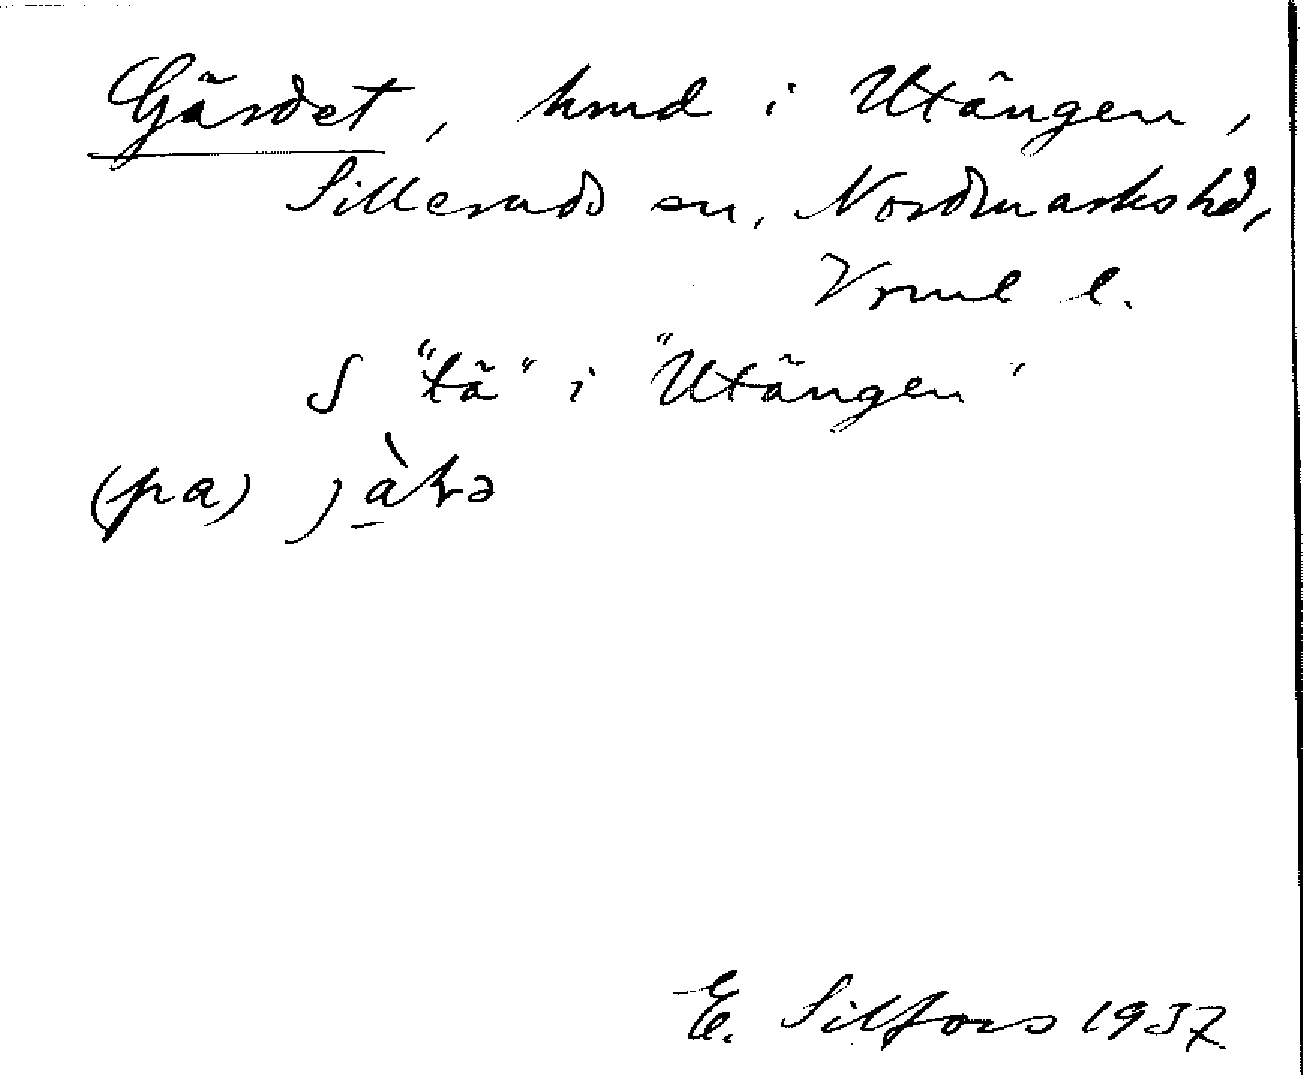 Gärdet, hmd i Utängen,
Silleruds sn, Nordmarks hd,
Vrml l.
S "tä" i "Utängen"
(pa)
E. Silfors 1937.